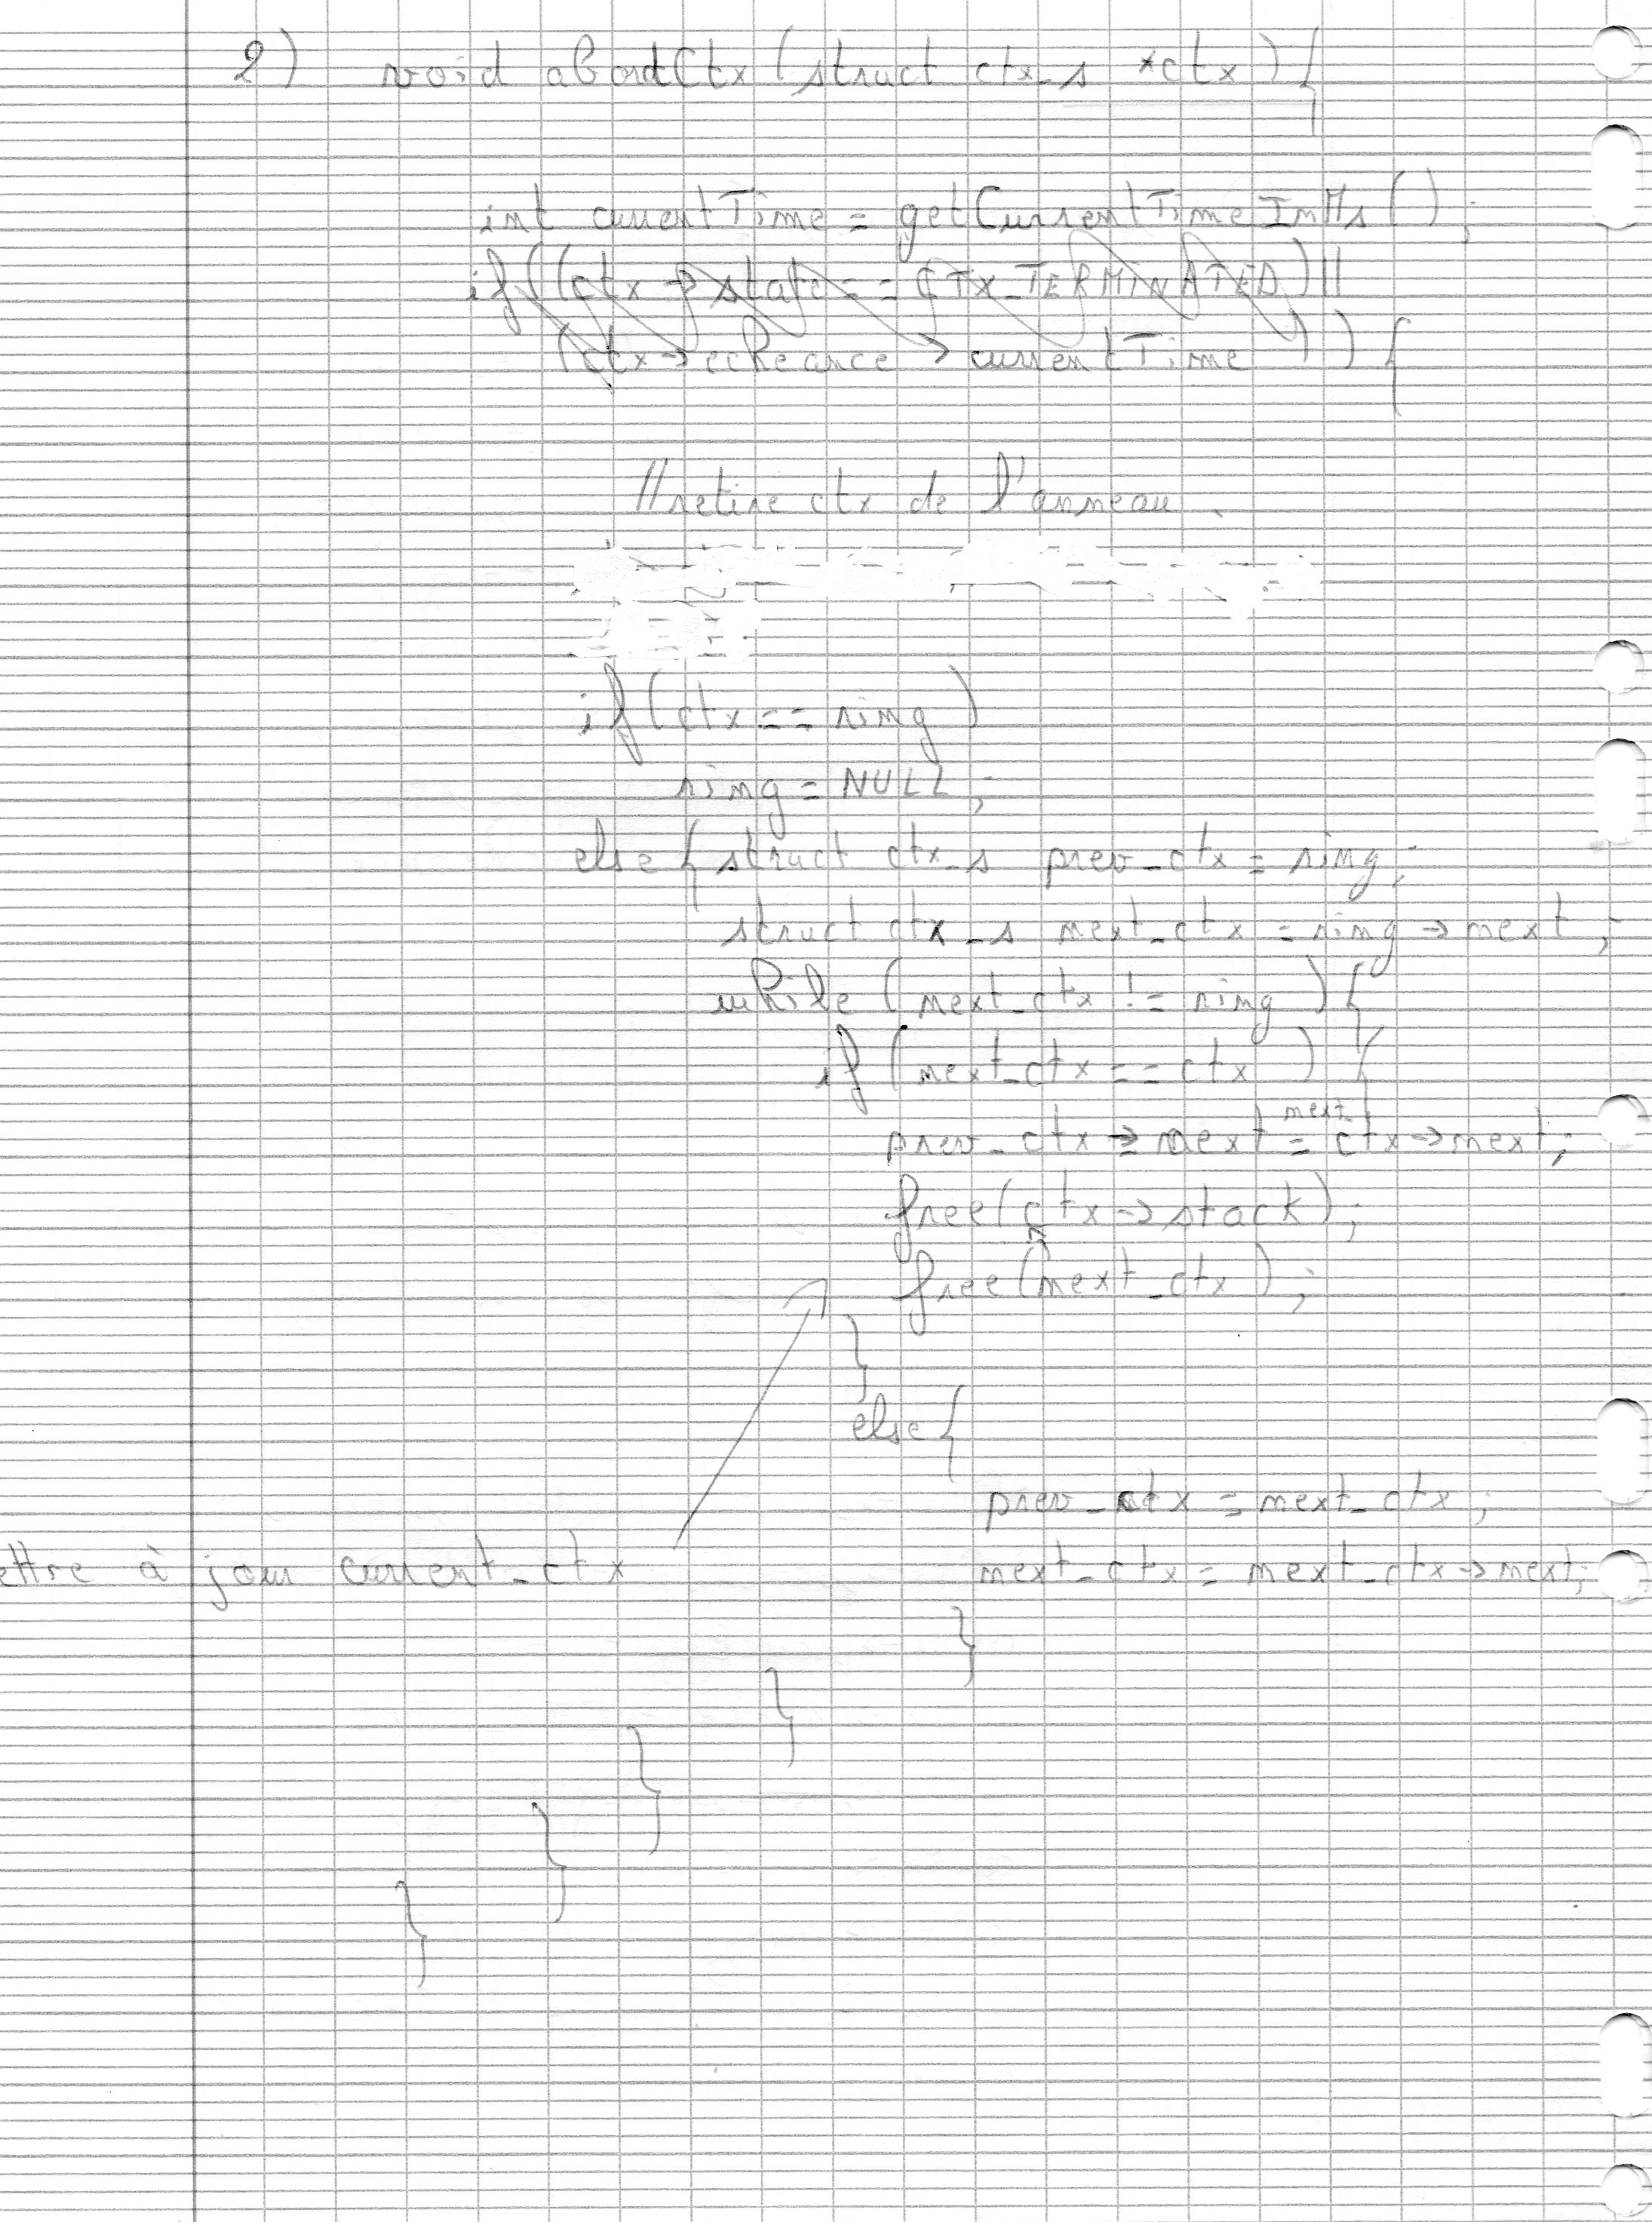 2) void abordCtx (struct ctx_s *ctx) {
int currentTime = getCurrentTimeInMs();
if ((ctx->state == CTX_TERMINATED) ||
(ctx->echeance > currentTime )) {
//retire ctx de l'anneau.
if (ctx == ring)
ring = NULL;
else { struct ctx_s prev_ctx = ring;
struct ctx_s next_ctx = ring -> next;
while (next_ctx != ring) {
if (next_ctx == ctx ) {
next_
prev_ctx -> next = ctx -> next;
free(ctx -> stack);
free(next_ctx);
}
else {
prev_ctx = next_ctx;
ettre à jour current_ctx next_ctx = next_ctx -> next;
}
}
}
}
}